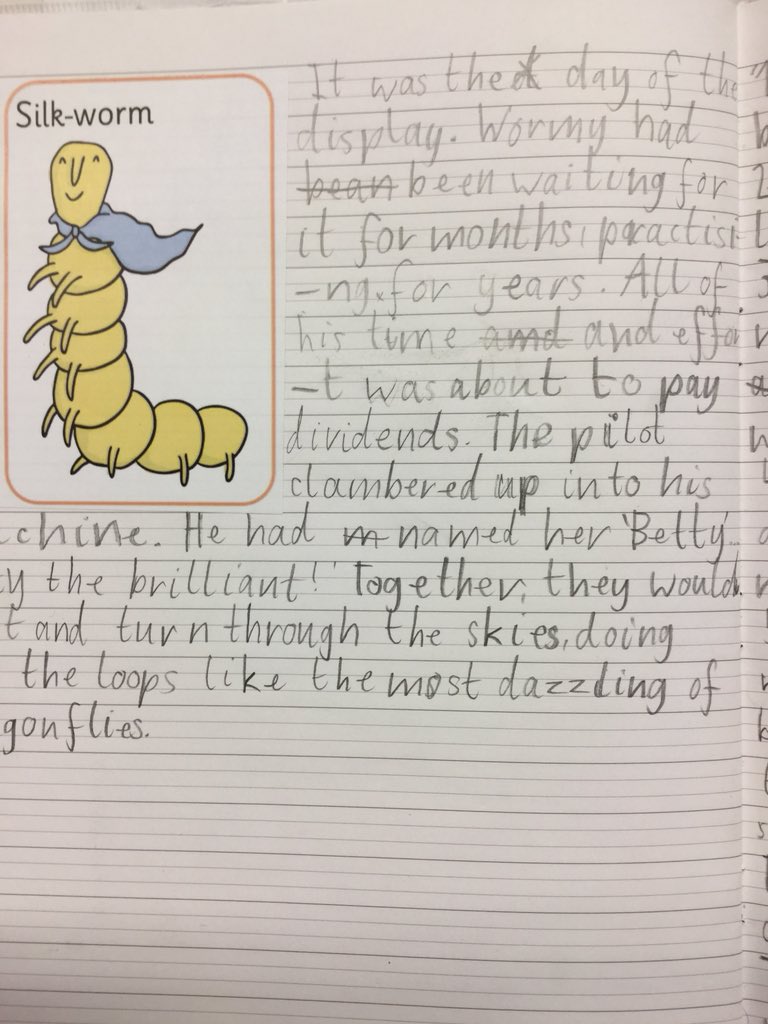 Silk-worm
It was the day of the
display. Wormy had
bean been waiting for
it for months, practisi
-ng for years. All of
his time amd and effor
-t was about to pay
dividends. The pilot
clambered up into his
chine. He had m named her 'Betty
y the brilliant!' Together, they would
t and turn through the skies, doing
the loops like the most dazzling of
gonflies.